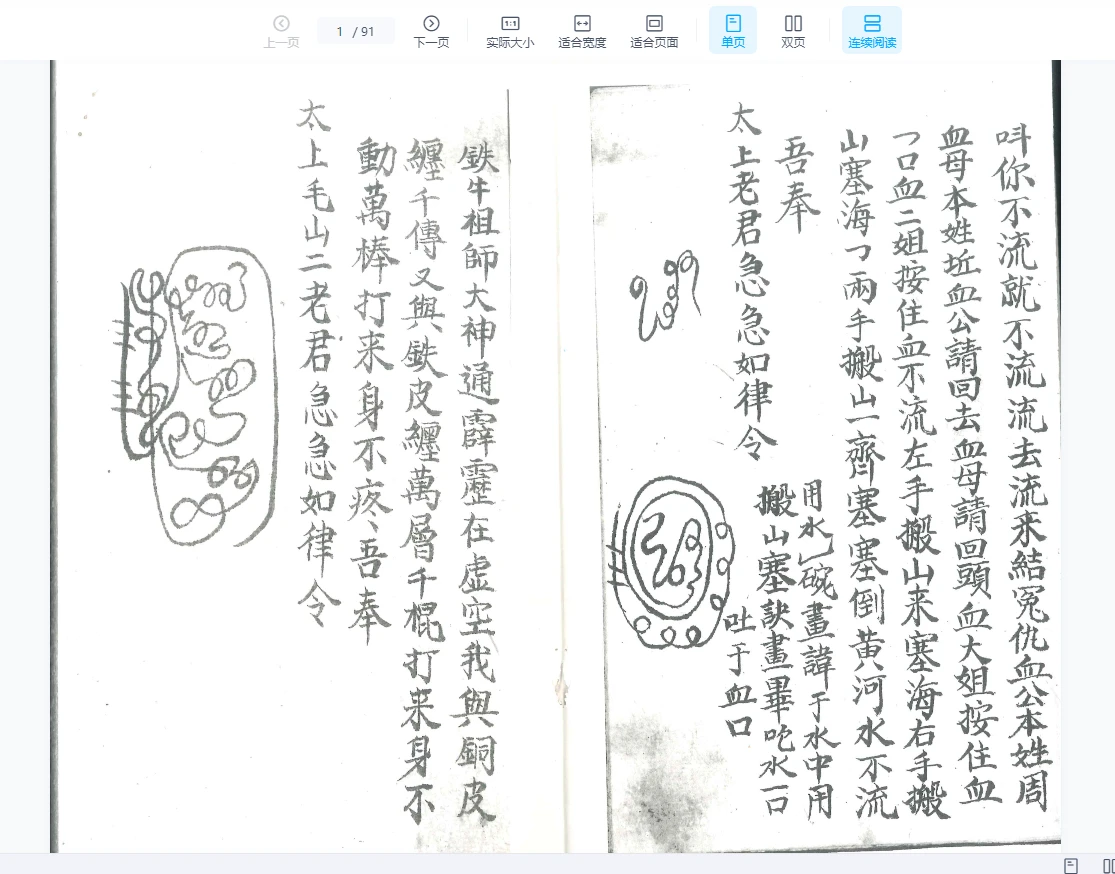 上一页
1 / 91
下一页
实际大小
适合宽度
适合页面
单页
双页
连续阅读
呌你不流就不流流去流来結冤仇血公本姓周
血母本姓坵血公請回去血母請回頭血大姐按住血
乛口血二姐按住血不流左手搬山来塞海右手搬
山塞海乛兩手搬山一齊塞塞倒黄河水不流
吾奉
太上老君急急如律令
用水乀碗畫諱于水中用
搬山塞訣畫畢吃水一口
吐于血口
鉄牛祖師大神通霹靂在虚空我與銅皮
纒千傳又與鉄皮纒萬層千棍打来身不
動萬棒打来身不疼、吾奉
太上毛山二老君急急如律令